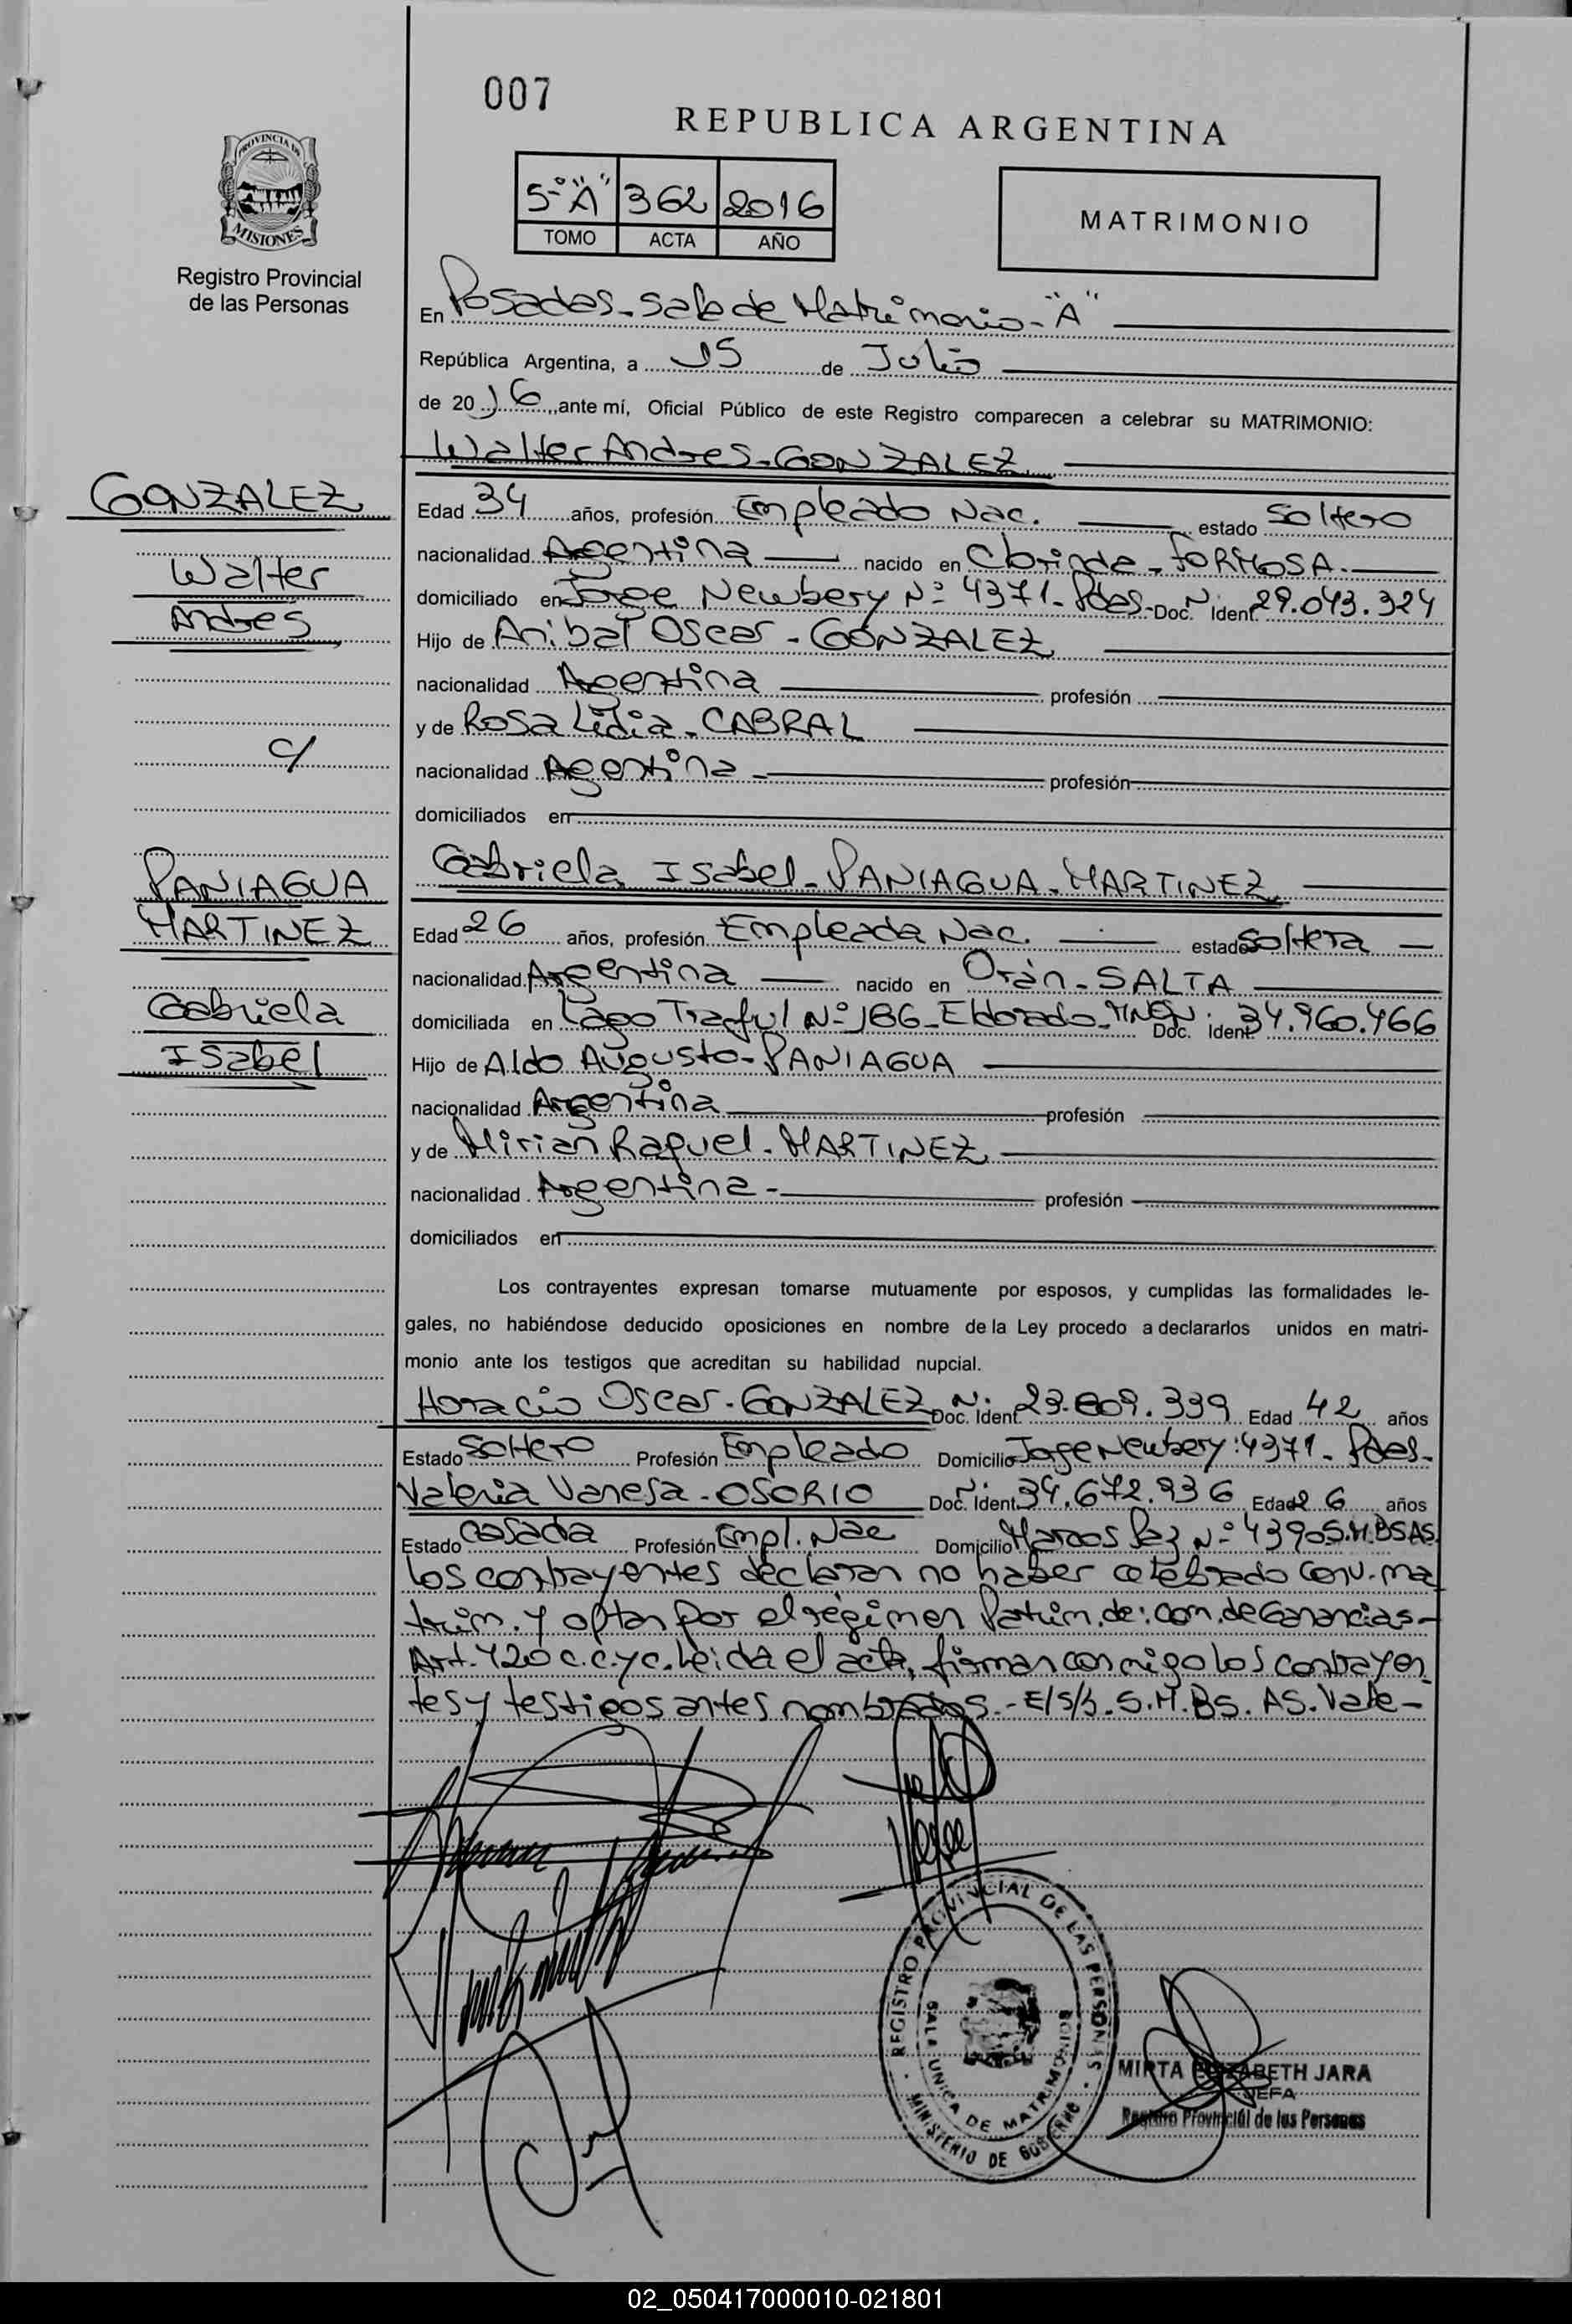 007
REPUBLICA ARGENTINA
PROVINCIA DE MISIONES
Registro Provincial
de las Personas
5-º"A" 362 2016
TOMO ACTA AÑO
MATRIMONIO
En Posadas-Sala de Matrimonio-"A"
República Argentina, a 15 de Julio
de 2016, ante mí, Oficial Público de este Registro comparecen a celebrar su MATRIMONIO:
Walter Andres-GONZALEZ
GONZALEZ
Walter
Andres
c/
PANIAGUA
MARTINEZ
Gabriela
Isabel
Edad 34 años, profesión Empleado Nac. estado Soltero
nacionalidad Argentina nacido en Clorinda-FORMOSA.
domiciliado en Jorge Newbery Nº 4371-Pdas- Doc. Ident. Nº 29.043.324
Hijo de Anibal Oscar-GONZALEZ
nacionalidad Argentina profesión
y de Rosa Lidia-CABRAL
nacionalidad Argentina- profesión
domiciliados en
Gabriela Isabel-PANIAGUA-MARTINEZ
Edad 26 años, profesión Empleada Nac. estado Soltera
nacionalidad Argentina nacido en Orán-SALTA
domiciliada en Lago Traful Nº 186-Eldorado-MNES Doc. Ident. 34.960.466
Hijo de Aldo Augusto-PANIAGUA
nacionalidad Argentina profesión
y de Mirian Raquel-MARTINEZ
nacionalidad Argentina- profesión
domiciliados en
Los contrayentes expresan tomarse mutuamente por esposos, y cumplidas las formalidades le-
gales, no habiéndose deducido oposiciones en nombre de la Ley procedo a declararlos unidos en matri-
monio ante los testigos que acreditan su habilidad nupcial.
Horacio Oscar-GONZALEZ Doc. Ident. Nº 23.809.339 Edad 42 años
Estado Soltero Profesión Empleado Domicilio Jorge Newbery:4371-Pdas-
Valeria Vanesa-OSORIO Doc. Ident. Nº 34.672.936 Edad 26 años
Estado Casada Profesión Empl. Nac Domicilio Marcos Paz Nº 4390 S.M.BS AS.
los contrayentes declaran no haber celebrado Conv. ma
trim. y optan por el régimen Patrim. de: com. de Ganancias-
Art. 420 c.c.yc. Leida el acta, firman con migo los contrayen
tes y testigos antes nombrados.-E/S/b. S.M.BS. AS. Vale-
REGISTRO PROVINCIAL DE LAS PERSONAS
SALA UNICA DE MATRIMONIOS
MINISTERIO DE GOBIERNO
MIRTA ELIZABETH JARA
JEFA
Registro Provincial de las Personas
02_050417000010-021801